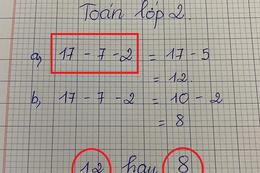 Toán lớp 2.
a, 17 - 7 - 2 = 17 - 5
= 12.
b, 17 - 7 - 2 = 10 - 2
= 8
12 hay 8